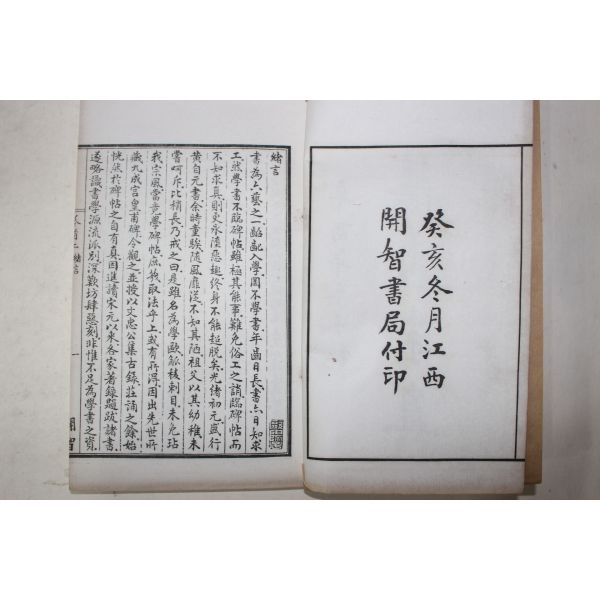 癸亥冬月江西
開智書局付印
緒言
書為六藝之一齠齔入學罔不學書年齒日長書亦日知求
工然學書不臨碑帖雖極其能事難免俗工之誚臨碑帖而
不知求真則更永陸惡趣終身不能超脫矣光緒初元盛行
黃自元書余時童騃隨風靡從不知其陋祖父以其幼稚未
嘗呵斥比稍長乃戒之曰是雖名為學歐觚棱刺目未免玷
我宗風當求學碑帖庶幾取法乎上或有所得因出先世所
藏九成宮皇甫碑令觀之並授以文忠公集古錄莊誦之餘始
恍然於碑帖之自有真因進讀宋元以來各家著錄題跋諸書
遂略識書學源流派別深歎坊肆惡刻非惟不足為學書之資
緒言
一
開智